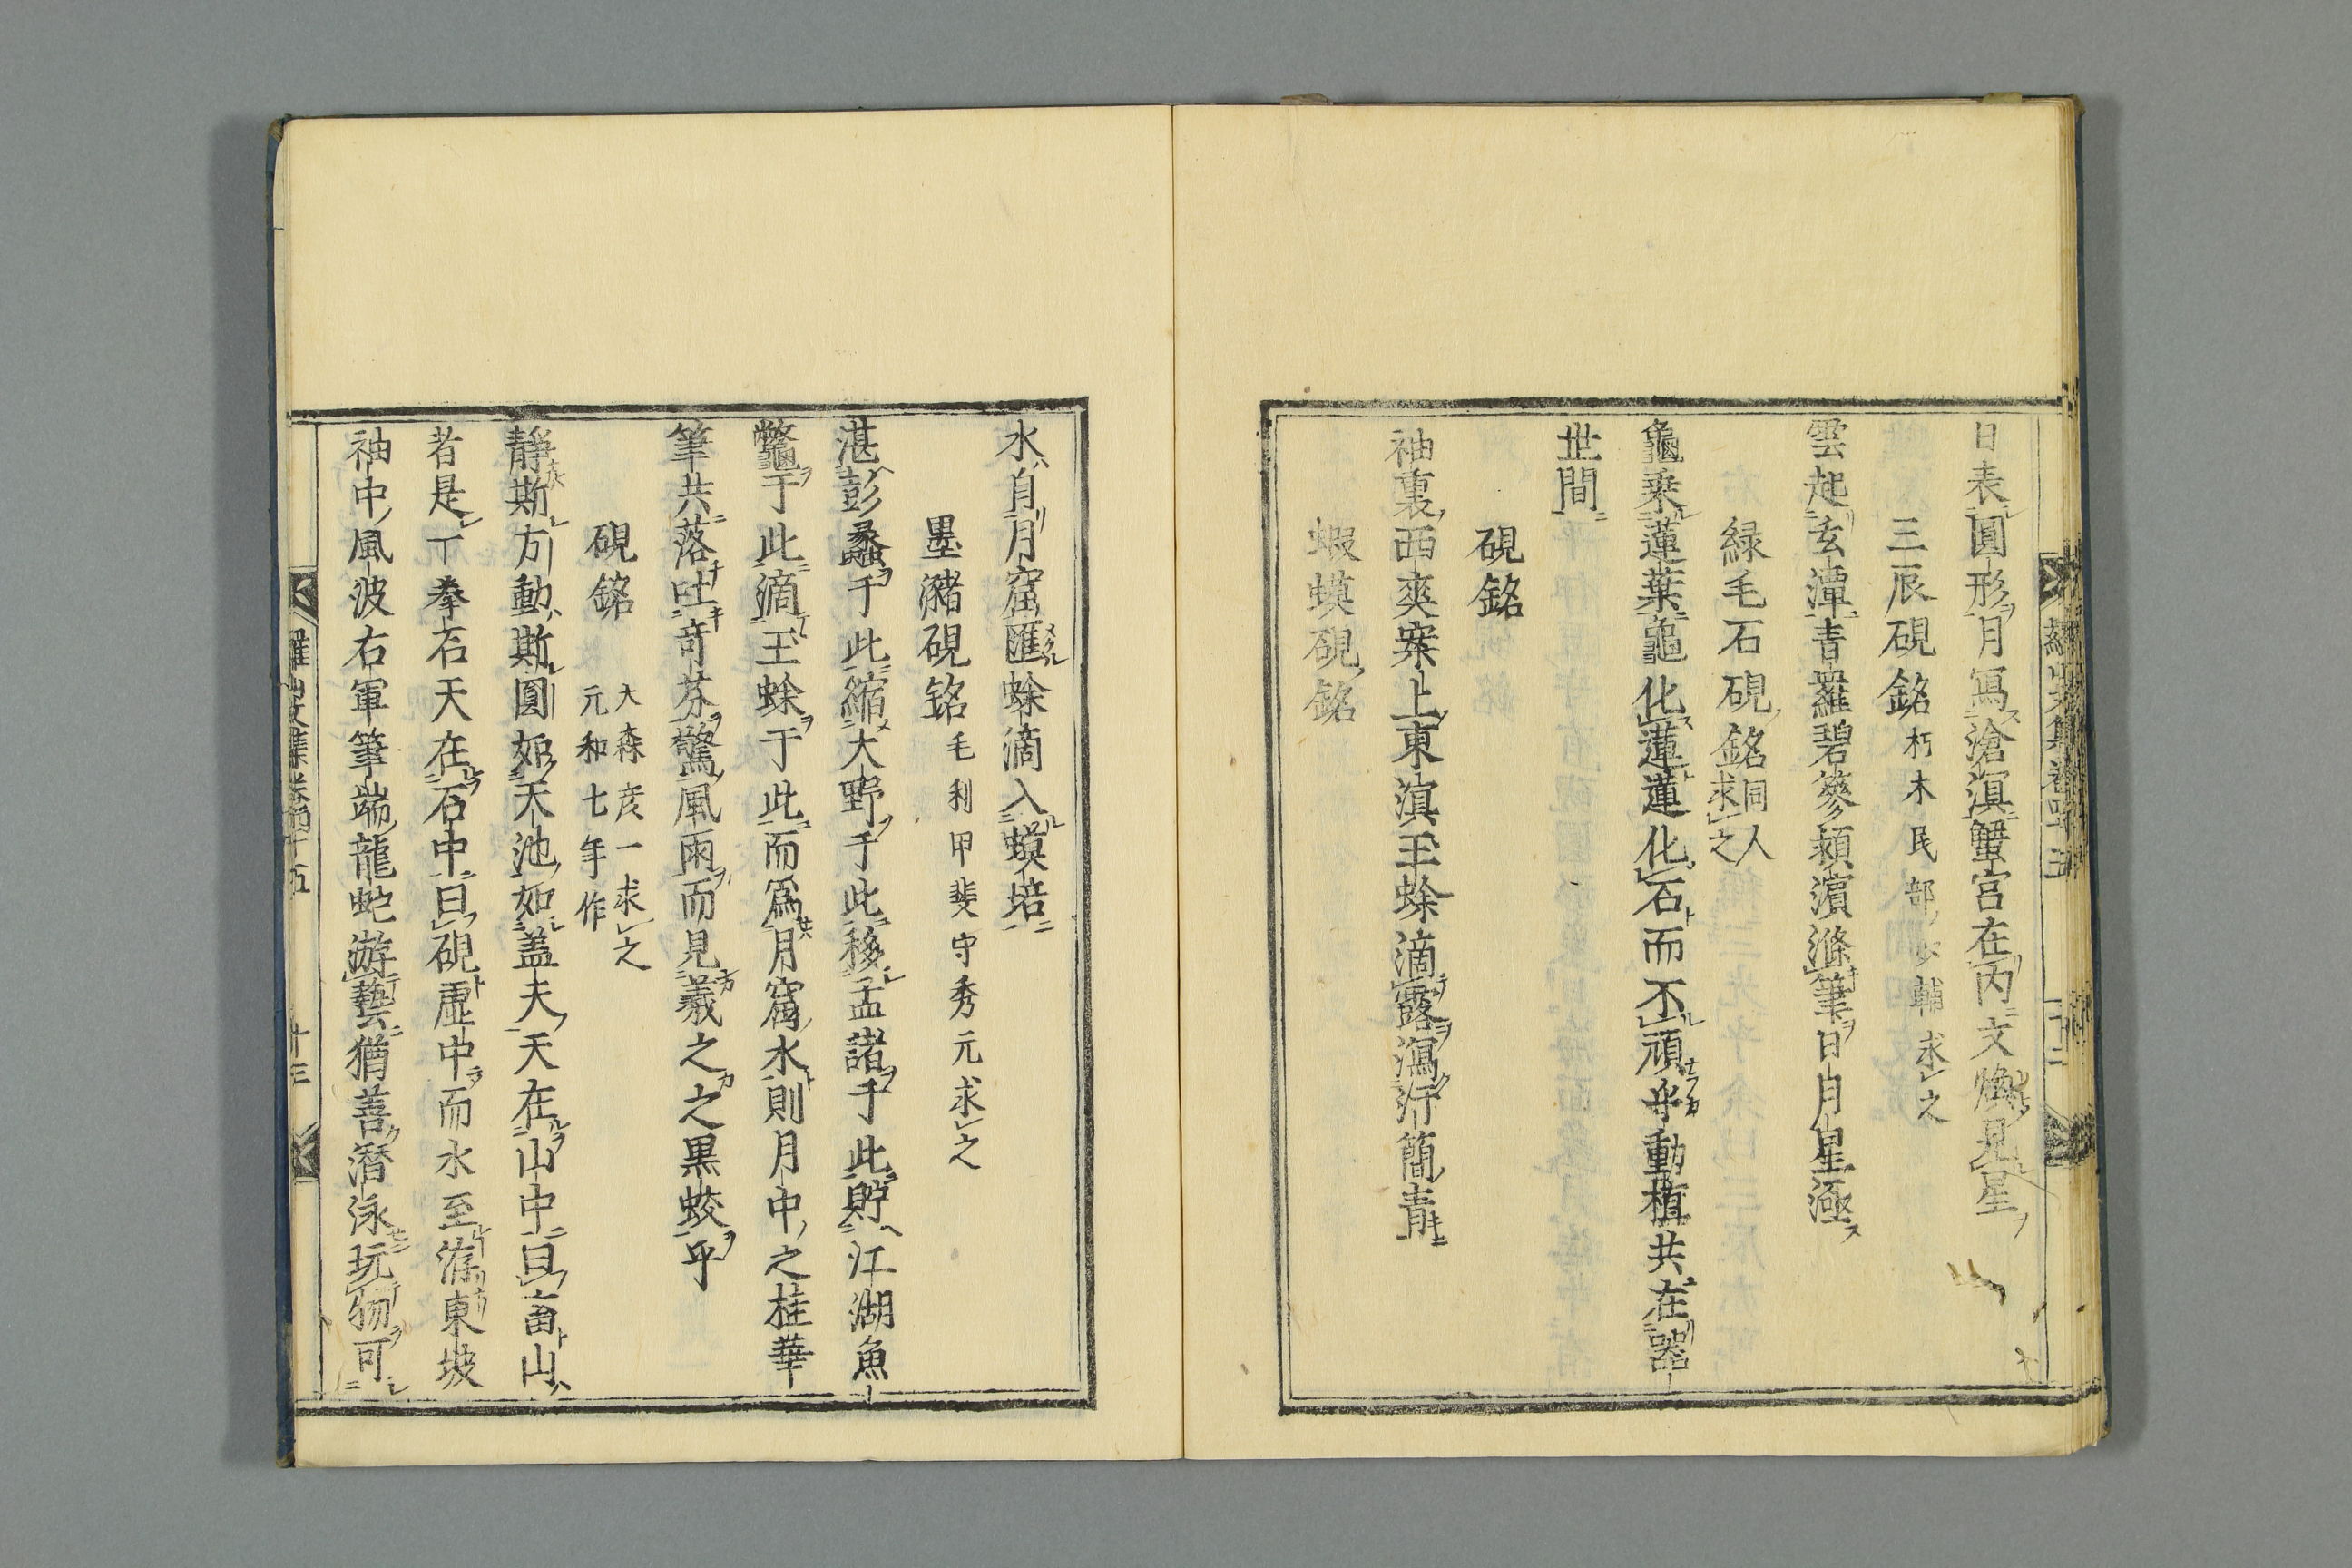 日表圓形月寫滄溟蟹宮在丙文煥見星
三辰硯銘 朽木民部少輔求之
雲起玄潭青羅碧篸頮濱滌筆日月星極
緑毛石硯銘 同人求之
龜乗蓮葉龜化蓮蓮化石而不頑乎動植共在器
世間
硯銘
袖裏西爽案上東溟玉蜍滴露瀉汗簡青
蝦蟆硯銘
水自月窟匯蜍滴入蟆培
墨瀦硯銘 毛利甲斐守秀元求之
湛彭蠡于此縮大野于此移孟諸于此貯江湖魚
鼈于此滴玉蜍于此而爲月窩水則月中之桂華
筆共落吐奇芬驚風雨而見羲之之黒蛟乎
硯銘 大森彦一求之
元和七年作
靜斯方動斯圓如天池如盖夫天在山中曰畜山
者是丁拳石天在石中曰硯虚中而水至洊東坡
袖中風波右軍筆端龍蛇游藝猶善潛泳玩物可
羅山文集卷四十五
十三